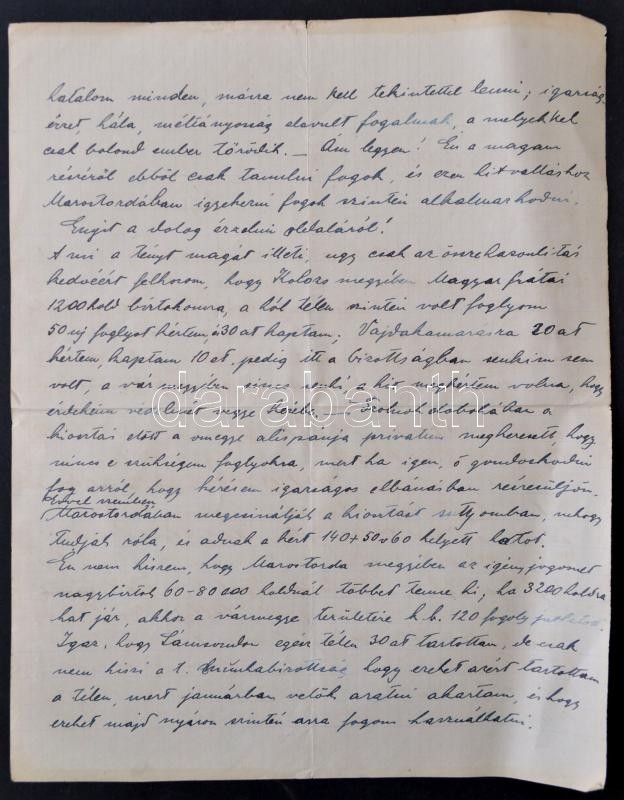 hatalom minden, másra nem kell tekintettel lenni; igazság-
érzet, hála, méltányosság elavult fogalmak, a melyekkel
csak bolond ember törődik. — Ám legyen! Én a magam
részéről ebből csak tanulni fogok, és ezen hitvalláshoz
Marostordában igyekezni fogok szintén alkalmazkodni.
Ennyit a dolog érzelmi oldaláról!
A mi a tényt magát illeti, ugy csak az összehasonlitás
kedvéért felhozom, hogy Kolozs megyében Magyar frátai
1200 hold birtokomra, a hól télen szintén volt foglyom
50 uj foglyot kértem, és 30at kaptam, Vajdakamarásra 20at
kértem, kaptam 10et, pedig itt a bizottságban senkim sem
volt, a vármegyében sincs senki, a kit megkértem volna, hogy
érdekeim védelmét vegye kezébe. — Szolnokdobokában a
kiosztás előtt a megye alispánja privatim megkeresett, hogy
nincs e szükségem foglyokra, mert ha igen, ő gondoskodni
fog arról, hogy kérésem igazságos elbánásban részesüljön.
Evvel szemben
Marostordában megcsinálják a kiosztást suttyomban, nehogy
tudják róla, és adnak a kért 140+50 v 60 helyett hatot.
Én nem hiszem, hogy Marostorda megyében az igényjogosult
nagybirtok 60-80000 holdnál többet tenne ki, ha 3200 holdra
hat jár, akkor a vármegye területére k.b. 120 fogoly
Igaz, hogy Sámsondon egész télen 30at tartottam, de csak
nem hiszi a t. Munkabizottság hogy ezeket azért tartottam
a télen, mert januárban velök aratni akartam, és hogy
ezeket majd nyáron szintén arra fogom használhatni.
darabanth